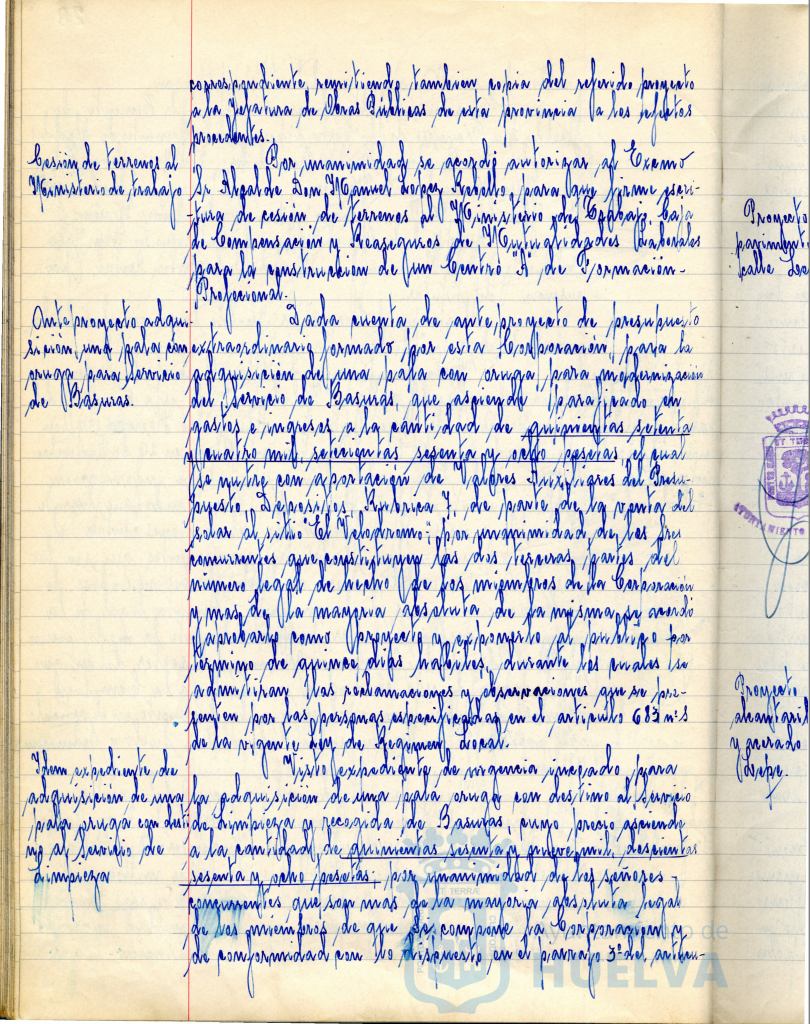 correspondiente, remitiendo tambien copia del referido proyecto
a la Jefatura de Obras Públicas de esta provincia a los efectos
procedentes.
Cesión de terrenos al
Ministerio de trabajo
Por unanimidad se acordó autorizar al Excmo
Sr Alcalde Don Manuel Lopez Rebollo, para que firme escri-
tura de cesión de terrenos al Ministerio de Trabajo, Caja
de Compensación y Reaseguros de Mutualidades Laborales
para la construcción de un Centro "A" de Formación-
Profecional.
Anteproyecto adqui-
sición una pala con
oruga para Servicio
de Basuras.
Dada cuenta de anteproyecto de presupuesto
extraordinario formado por esta Corporación, para la
adquisición de una pala con oruga para modernización
del Servicio de Basuras, que asciende en
gastos e ingresos a la cantidad de quinientas setenta
y cuatro mil, setecientas sesenta y ocho pesetas el cual
se nutre con aportación de Valores Auxiliares del Presu-
puesto, Depositos, Rubrica 7, de parte de la venta del
solar al sitio "El Velodromo"; por unanimidad de los Sres
concurrentes que constituyen las dos terceras partes del
número legal de hecho de los miembros de la Corporación
y mas de la mayoria absoluta de la misma, se acordó
aprobarlo como proyecto y exponerlo al publico por
termino de quince dias habiles, durante los cuales se
admitiran las reclamaciones y observaciones que se pre-
senten por las personas especificadas en el articulo 683 nº 1
de la vigente Ley de Regimen Local.
Idem expediente de
adquisición de una
pala oruga con desti
no al Servicio de
Limpieza
Visto expediente de urgencia incoado para
la adquisición de una pala oruga con destino al Servicio
de Limpieza y recogida de Basuras, cuyo precio asciende
a la cantidad de quinientas sesenta y nueve mil, doscientas
sesenta y ocho pesetas; por unanimidad de los señores-
concurrentes que son mas de la mayoria absoluta legal
de los miembros de que se compone la Corporación y
de conformidad con lo dispuesto en el parrafo 3º del articu-
Proyecto
paviment
calle
Proyecto
alcantaril
y acerado
Lepe.
AYUNTAMIENTO
Ayuntamiento de
HUELVA